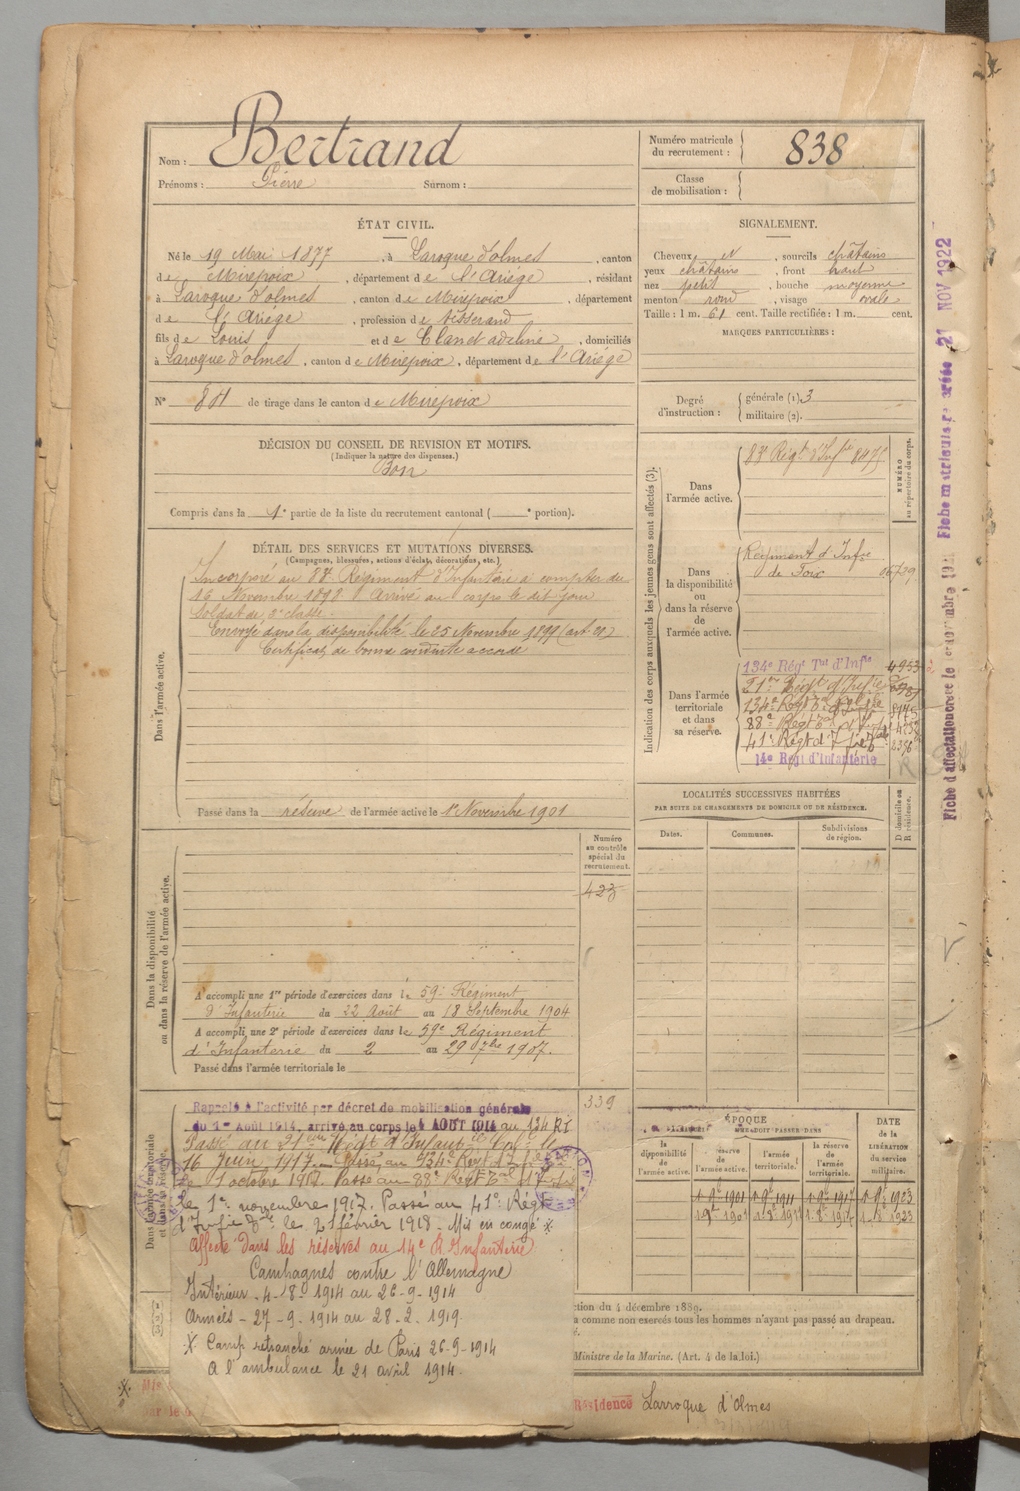 Nom : Bertrand
Prénoms : Pierre Surnom :
Numéro matricule du recrutement : 838
Classe de mobilisation :
ÉTAT CIVIL.
Né le 19 Mai 1877, à Laroque d'olmes, canton
de Mirepoix, département de l'Ariège, résidant
à Laroque d'olmes, canton de Mirepoix, département
de l'Ariège, profession de tisserand
fils de Louis et de Clanet adeline, domiciliés
à Laroque d'olmes, canton de Mirepoix, département de l'Ariège
N° de tirage dans le canton de Mirepoix
SIGNALEMENT.
Cheveux N, sourcils châtains
yeux châtains, front haut
nez petit, bouche moyenne
menton rond, visage ovale
Taille : 1 m. 61 cent. Taille rectifiée : 1 m. cent.
MARQUES PARTICULIÈRES :
Degré d'instruction : générale (1). 3
militaire (2).
DÉCISION DU CONSEIL DE REVISION ET MOTIFS.
(Indiquer la nature des dispenses.)
Bon
Compris dans la 1e partie de la liste du recrutement cantonal ( e portion).
DÉTAIL DES SERVICES ET MUTATIONS DIVERSES.
(Campagnes, blessures, actions d'éclat, décorations, etc.)
Dans l'armée active.
Incorporé au Régiment d'Infanterie à compter du
16 Novembre 1898 Arrivé au corps le dit jour
Soldat de 2e classe.
Envoyé dans la disponibilité le 25 Novembre 1899 (art. 21)
Certificat de bonne conduite accordé
Passé dans la réserve de l'armée active le 1er Novembre 1901
Indication des corps auxquels les jeunes gens sont affectés (3).
NUMÉRO au répertoire du corps.
Dans l'armée active.
Régt d'Infie 8475
Dans la disponibilité ou dans la réserve de l'armée active.
Régiment d'Infie
de Foix
Dans l'armée territoriale et dans sa réserve.
134e Régt Tal d'Infie 4953
21me Régt d'Infie
134e Régt
88e Régt
41e Régt d'
14e Régt d'Infanterie
LOCALITÉS SUCCESSIVES HABITÉES
PAR SUITE DE CHANGEMENTS DE DOMICILE OU DE RÉSIDENCE.
Dates. Communes. Subdivisions de région.
D domicile ou R résidence.
Dans la disponibilité ou dans la réserve de l'armée active.
Numéro au contrôle spécial du recrutement.
423
A accompli une 1re période d'exercices dans le 59e Régiment
d'Infanterie du 22 Août au 18 Septembre 1904
A accompli une 2e période d'exercices dans le 59e Régiment
d'Infanterie du 2 au 29 7bre 1907.
Passé dans l'armée territoriale le
339
Dans l'armée territoriale et dans sa réserve.
Rappelé à l'activité par décret de mobilisation générale
du 1er Août 1914, arrivé au corps le 4 AOUT 1914 au 134 RI
Passé au 21eme Régt d'Infanterie
16 Juin 1917. Passé au 134e Régt
1 octobre 1917. Passé au 88e Régt
le 1er novembre 1917. Passé au 41e Régt
d'Infie le 21 février 1918 - Mis en congé ※
Affecté dans les réserves au 14e R. Infanterie
Campagnes contre l'Allemagne
Intérieur - 4-8-1914 au 26-9-1914
Armées - 27-9-1914 au 28-2-1919.
※ Camp retranché armée de Paris 26-9-1914
A l'ambulance le 21 avril 1914.
ÉPOQUE
la disponibilité de l'armée active. la réserve de l'armée active. l'armée territoriale. la réserve de l'armée territoriale.
DATE de la LIBÉRATION du service militaire.
1 9bre 1901
ction du 4 décembre 1889.
a comme non exercés tous les hommes n'ayant pas passé au drapeau.
Ministre de la Marine. (Art. 4 de la loi.)
Résidence Larroque d'Olmes
21 NOV 1922